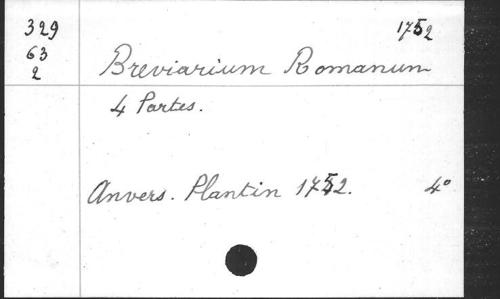 329 1752
63
2 Breviarium Romanum
4 Partes.
Anvers. Plantin 1752. 4°